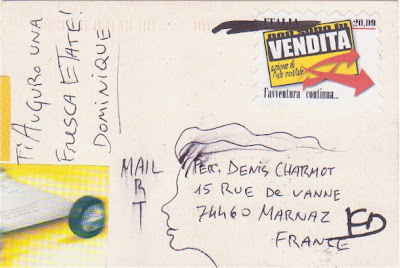 TI AUGURO UNA
FRESCA ESTATE!
DOMINIQUE
ITALIA 20.09
non sono in
VENDITA
l'avventura continua...
MAIL
ART
PER. DENIS CHARMOT
15 RUE DE VANNE
74460 MARNAZ
FRANCE